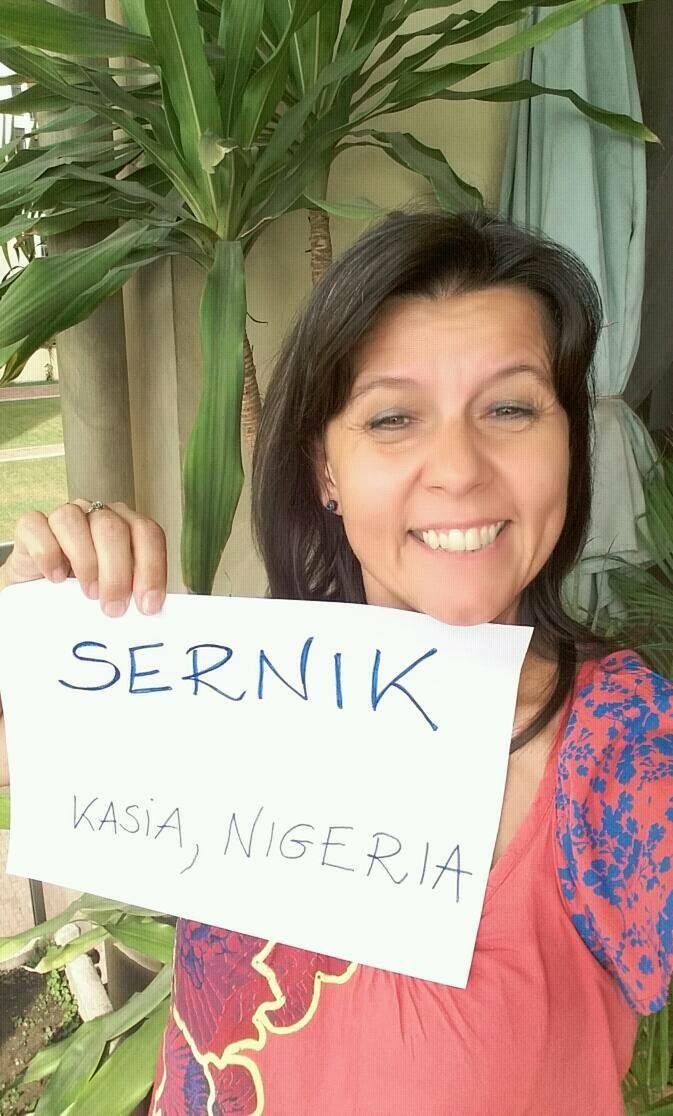 SERNIK
KASiA, NIGERIA